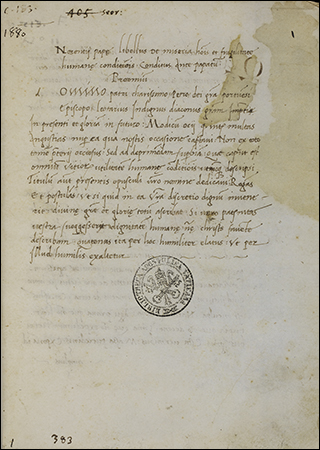 C. 183.
405 Seor:
1880
1
N ocentij pape libellus de miseria hois et fragilitate
humane conditionis. Conditus Ante papatum
Proemium
Domino patri charissimo Petro dei gra portuensi
Episcopo: lotarius Indignus diaconus gram
In presenti et gloria in futuro. Modicum ocij Inter multas
Angustias nuper ea qua nostis occasione captaui Non ex oto
Sed ad deprimendam superbia que caput est
omnium vitiorum vilitatem humane conditionis descripsi.
Titulum aut presentis opusculi vro nomine dedicaui Rogas
Et postulas Vt si quid in ea Vra discretio dignum Inuene
rit diuine gre et glorie totum ascribat. Si uero paternitas
nostra suggesserit dignitatem humane ne Christo fauente
describam. quatenus ita per hoc humilietur elatus Vt per
Illud humilis exaltetur
BIBLIOTHECA APOSTOLICA VATICANA
1
383